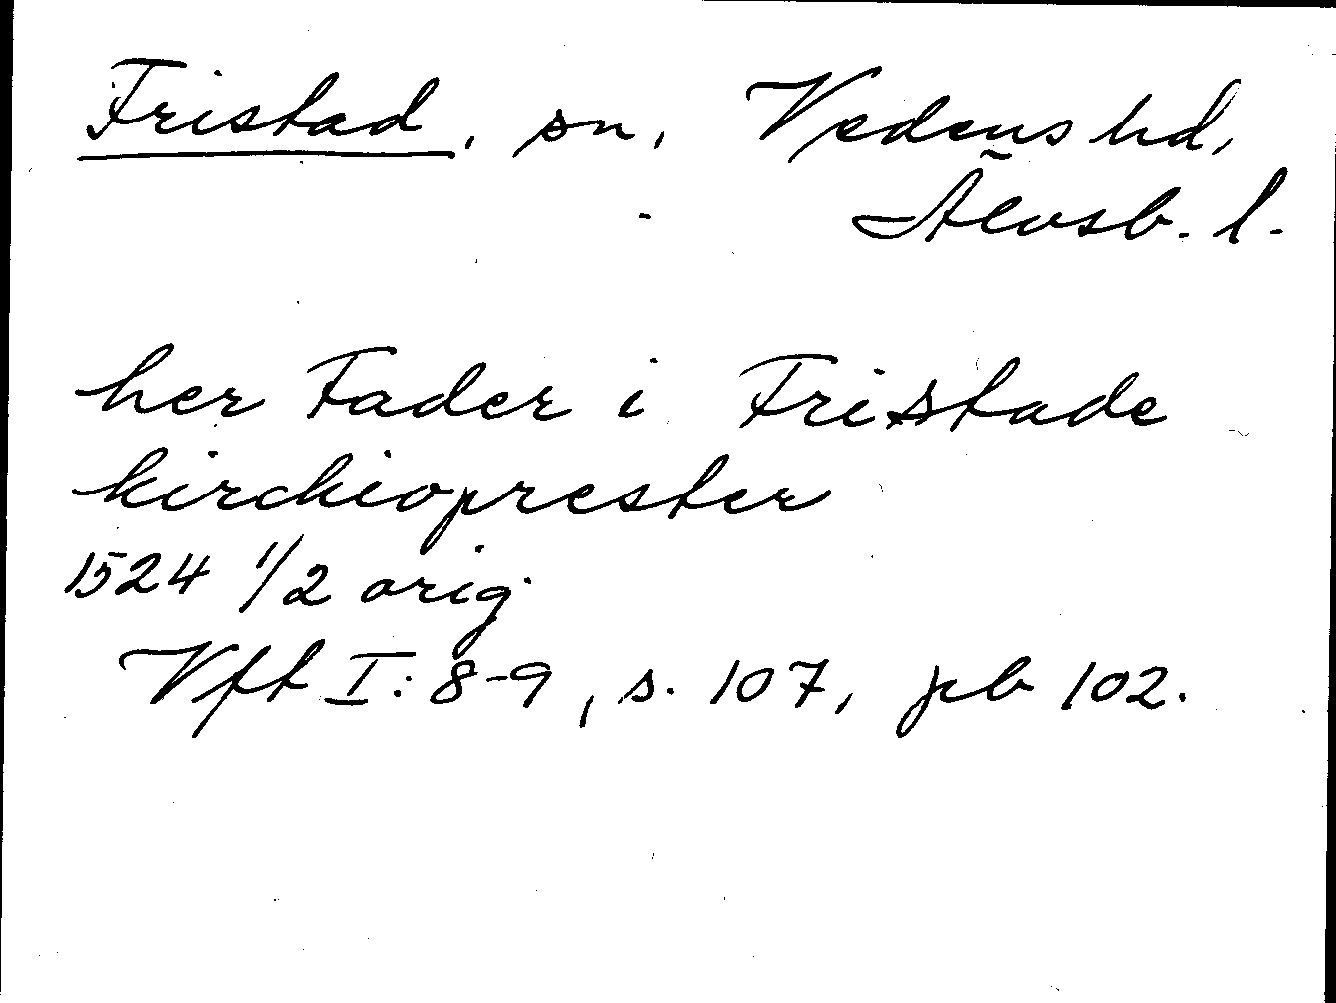 Fristad, sn, Vedens hd,
Älvsb. l.
her Fader i Fristade
kirchioprester
1524 1/2 orig.
Vft I: 8-9, s. 107, pb 102.